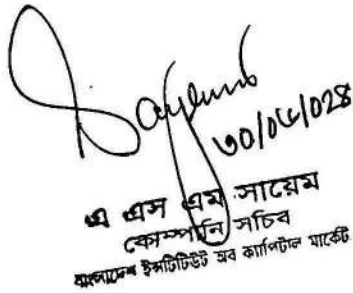 Sayem
৩০/০৬/০২৪
এ এস এম সায়েম
কোম্পানি সচিব
বাংলাদেশ ইন্সটিটিউট অব ক্যাপিটাল মার্কেট